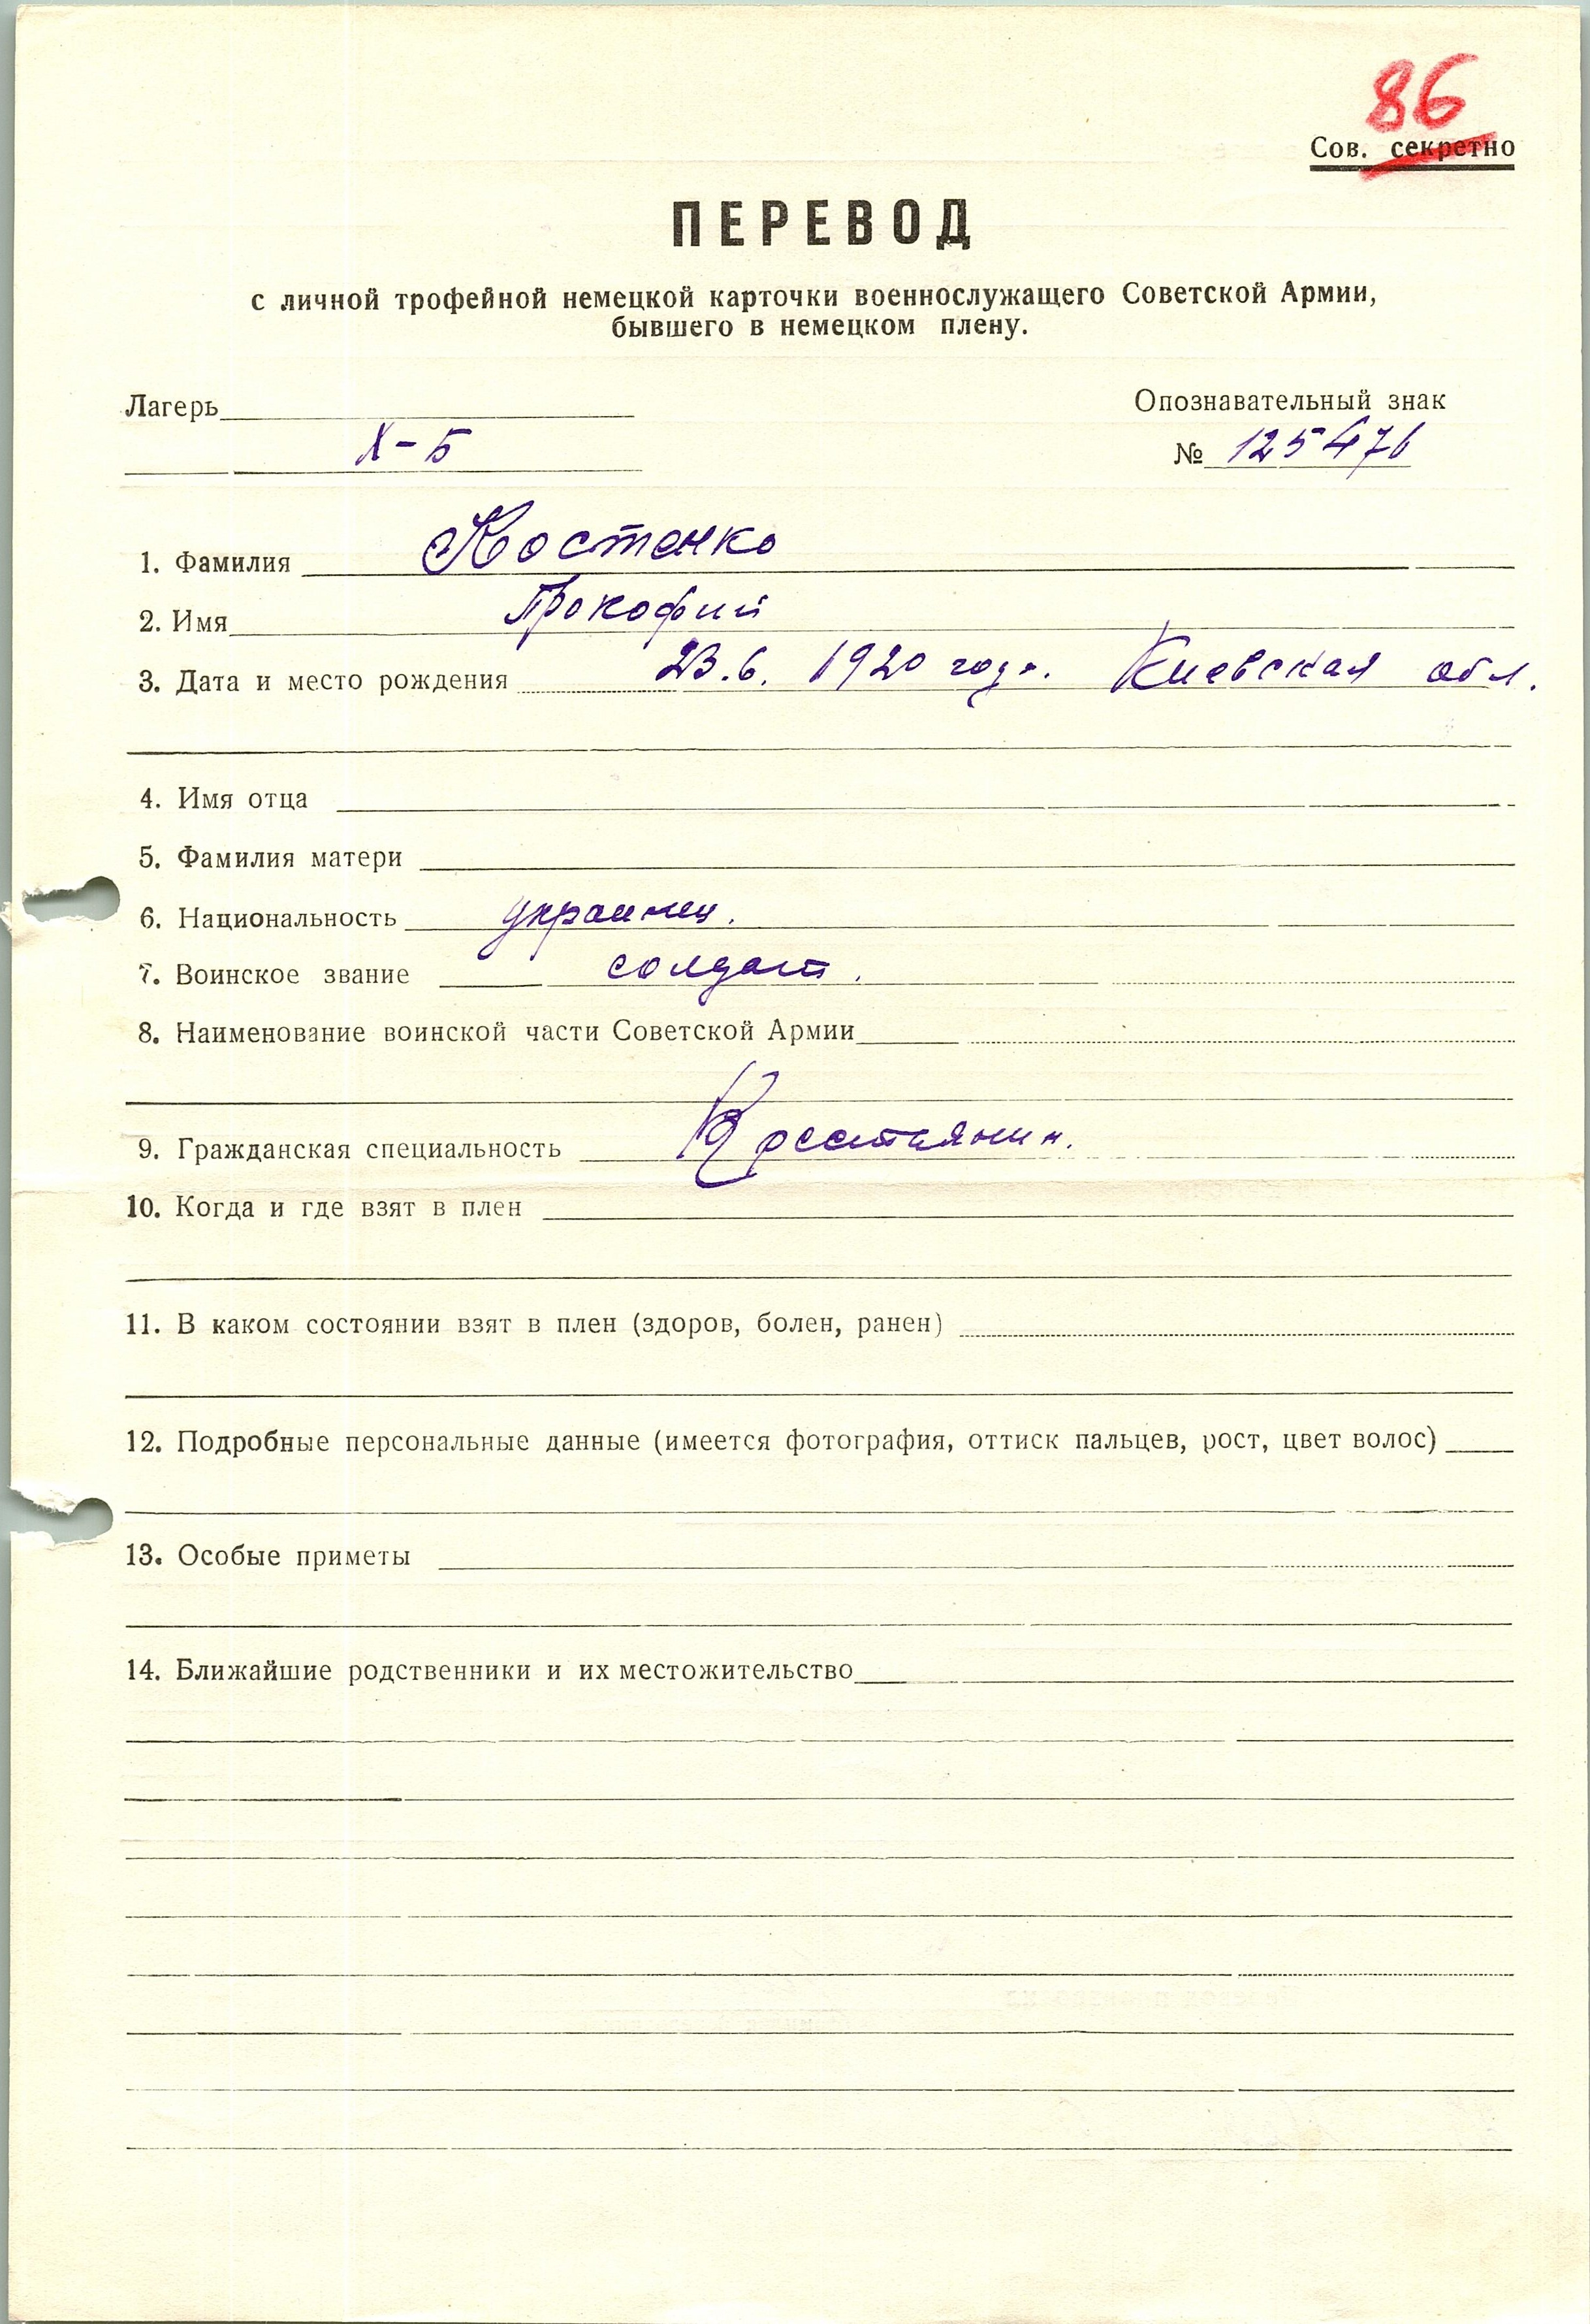 86
Сов. секретно
ПЕРЕВОД
с личной трофейной немецкой карточки военнослужащего Советской Армии,
бывшего в немецком плену.
Лагерь
Опознавательный знак
X-Б
№ 125476
1. Фамилия Костенко
2. Имя Прокофий
3. Дата и место рождения 23.6. 1920 года. Киевская обл.
4. Имя отца
5. Фамилия матери
6. Национальность украинец.
7. Воинское звание солдат.
8. Наименование воинской части Советской Армии
9. Гражданская специальность Крестьянин.
10. Когда и где взят в плен
11. В каком состоянии взят в плен (здоров, болен, ранен)
12. Подробные персональные данные (имеется фотография, оттиск пальцев, рост, цвет волос)
13. Особые приметы
14. Ближайшие родственники и их местожительство